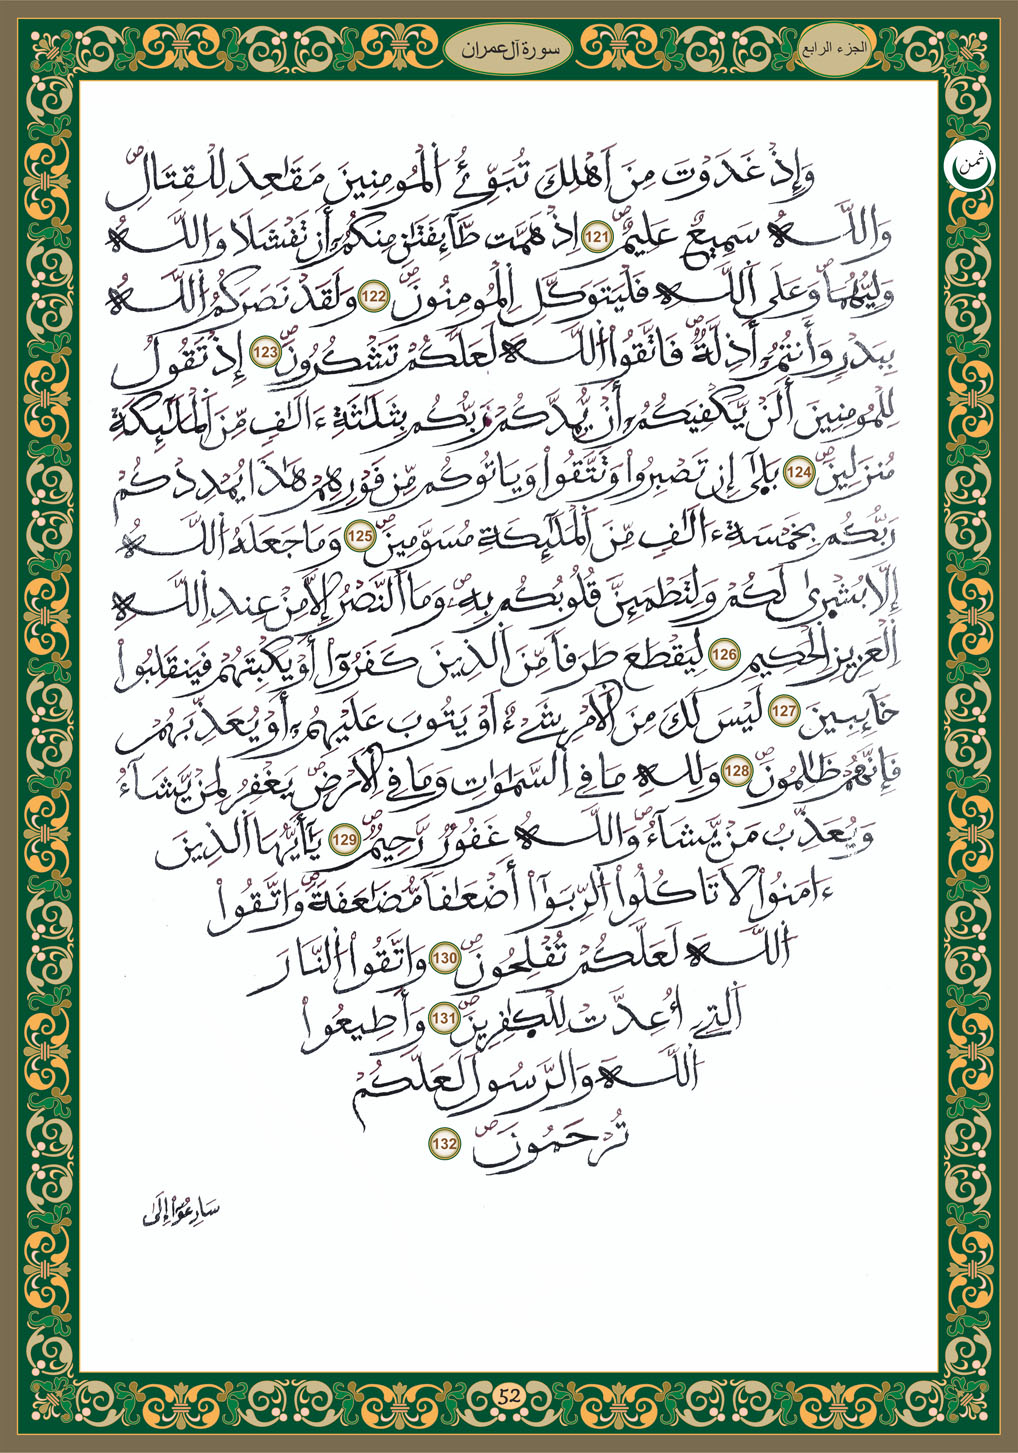 الجزء الرابع
سورة آل عمران
ثمن
وَإِذْ غَدَوْتَ مِنَ اَهْلِكَ تُبَوِّئُ اُلْمُومِنِينَ مَقَٰعِدَ لِلْقِتَالِۖ
وَاللَّهُ سَمِيعٌ عَلِيمٌۖ 121 اِذْ هَمَّت طَّآئِفَتَٰنِ مِنكُمُۥ أَن تَفْشَلَا وَاللَّهُ
وَلِيُّهُمَاۖ وَعَلَى اَللَّهِ فَلْيَتَوَكَّلِ اِلْمُومِنُونَۖ 122 وَلَقَدْ نَصَرَكُمُ اُللَّهُ
بِبَدْرٖ وَأَنتُمُۥ أَذِلَّةٌۖ فَاتَّقُواْ اُللَّهَ لَعَلَّكُمْ تَشْكُرُونَۖ 123 إِذْ تَقُولُ
لِلْمُومِنِينَ أَلَنْ يَّكْفِيَكُمُۥ أَنْ يُّمِدَّكُمْ رَبُّكُم بِثَلَٰثَةِ ءَالَٰفٖ مِّنَ اَلْمَلَٰٓئِكَةِ
مُنزَلِينَۖ 124 بَلَىٰٓ إِن تَصْبِرُواْ وَتَتَّقُواْ وَيَاتُوكُم مِّن فَوْرِهِمْ هَٰذَا يُمْدِدْكُمْ
رَبُّكُم بِخَمْسَةِ ءَالَٰفٖ مِّنَ اَلْمَلَٰٓئِكَةِ مُسَوَّمِينَۖ 125 وَمَا جَعَلَهُ اُللَّهُ
إِلَّا بُشْرٜىٰ لَكُمْ وَلِتَطْمَئِنَّ قُلُوبُكُم بِهِۦۖ وَمَا اَلنَّصْرُ إِلَّا مِنْ عِندِ اِللَّهِ
اِلْعَزِيزِ اِلْحَكِيمِ 126 لِيَقْطَعَ طَرَفاٗ مِّنَ اَلذِينَ كَفَرُوٓاْ أَوْ يَكْبِتَهُمْ فَيَنقَلِبُواْ
خَآئِبِينَ 127 لَيْسَ لَكَ مِنَ اَلَامْرِ شَےْءٌ اَوْ يَتُوبَ عَلَيْهِمُۥ أَوْ يُعَذِّبَهُمْ
فَإِنَّهُمْ ظَٰلِمُونَۖ 128 وَلِلهِ مَا فِے اِلسَّمَٰوَٰتِ وَمَا فِے اِلَارْضِۖ يَغْفِرُ لِمَنْ يَّشَآءُ
وَيُعَذِّبُ مَنْ يَّشَآءُۖ وَاللَّهُ غَفُورٌ رَّحِيمٌۖ 129 يَٰٓأَيُّهَا اَلذِينَ
ءَامَنُواْ لَا تَاكُلُواْ اُلرِّبَوٰٓاْ أَضْعَٰفاٗ مُّضَٰعَفَةٗۖ وَاتَّقُواْ
اُللَّهَ لَعَلَّكُمْ تُفْلِحُونَۖ 130 وَاتَّقُواْ اُلنَّارَ
اَلتِےٓ أُعِدَّتْ لِلْكٰفِرِينَۖ 131 وَأَطِيعُواْ
اُللَّهَ وَالرَّسُولَ لَعَلَّكُمْ
تُرْحَمُونَۖ 132
سَارِعُوٓاْ إِلَىٰ
52